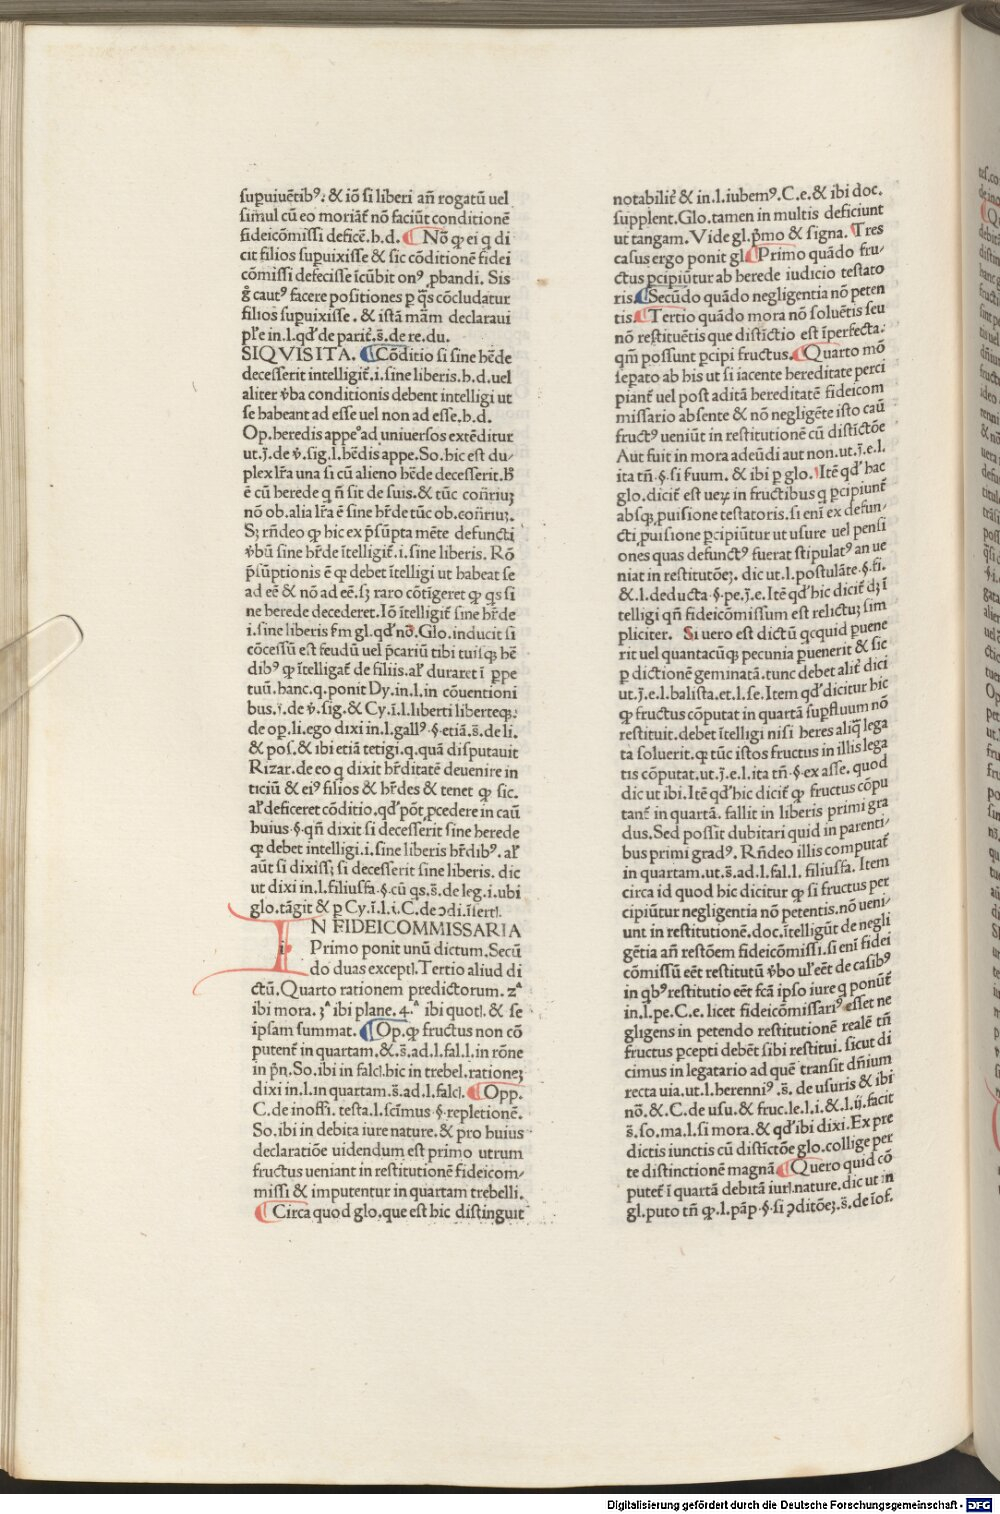 supuiuētibꝰ: & iō si liberi añ rogatū uel
simul cū eo moriāt̄ nō faciūt conditionē
fideicōmissi deficē.b.d. Nō ꝙ ei q di
cit filios supuixisse & sic cōditionē fidei
cōmissi defecisse īcūbit onꝰ ꝓbandi. Sis
g̊ cautꝰ facere positiones ꝑ q̄s cōcludatur
filios supuixisse. & istā mām declaraui
pl'e in.l.qd' de parit̄.s̄.de re.du.
SIQVISITA. Cōditio si sine hēde
decesserit intelligit̄.i.sine liberis.b.d.uel
aliter v̄ba conditionis debent intelligi ut
se habeant ad esse uel non ad esse.b.d.
Op.heredis appeꝰ ad uniuersos extēditur
ut.j̄.de v̄.sig.l.hēdis appe.So.hic est du/
plex lr̄a una si cū alieno hēde decesserit.ꝧ
ē cū herede q ñ sit de suis.& tūc coñriuꝫ
nō ob.alia lr̄a ē sine hr̄de tūc ob.coñriuꝫ.
Sꝫ rñdeo ꝙ hic ex p̄sūpta mēte defuncti
v̄bū sine hr̄de ītelligit̄.i.sine liberis. Rō
p̄sūptionis ē ꝙ debet ītelligi ut habeat se
ad eē & nō ad eē.sꝫ raro cōtigeret ꝙ qs si
ne herede decederet.Iō ītelligit̄ sine hr̄de
i.sine liberis fm gl.qd' nō.Glo.inducit si
cōcessū est feudū uel p̄cariū tibi tuisqꝫ hē
dibꝰ ꝙ ītelligat̄ de filiis.al' duraret ī ꝑpe
tuū.hanc.q.ponit Dy.in.l.in cōuentioni
bus.j̄.de v̄.sig.& Cy.ī.l.liberti liberteqꝫ.
de op.li.ego dixi in.l.gallꝰ.§.etiā.s̄.de li.
& pos.& ibi etiā tetigi.q.quā disputauit
Rizar.de eo q dixit hr̄ditatē deuenire in
ticiū & eiꝰ filios & hr̄des & tenet ꝙ sic.
al' deficeret cōditio.qd' pōt ꝓcedere in caū
huius.§.qñ dixit si decesserit sine herede
ꝙ debet intelligi.i.sine liberis hr̄dibꝰ. al'
aūt si dixissꝫ si decesserit sine liberis. dic
ut dixi in.l.filiusfa.§.cū qs.s̄.de leg.i.ubi
glo.tāgit & ꝑ Cy.ī.l.i.C.de ɔdi.īsertꝭ.
IN FIDEICOMMISSARIA
Primo ponit unū dictum.Secū
do duas exceptꝭ.Tertio aliud di
ctū.Quarto rationem predictorum. 2ᵃ
ibi mora. 3ᵃ ibi plane. 4.ᵃ ibi quotꝭ. & se
ipsam summat. Op.ꝙ fructus non cō
putent̄ in quartam.&.s̄.ad.l.fal.l.in rōne
in p̄n.So.ibi in falcꝭ.hic in trebel.rationeꝫ
dixi in.l.in quartam.s̄.ad.l.falcꝭ. Opp.
C.de inoffi. testa.l.scīmus §.repletionē.
So.ibi in debita iure nature.& pro huius
declaratiōe uidendum est primo utrum
fructus ueniant in restitutionē fideicom/
missi & imputentur in quartam trebelli.
Circa quod glo.que est hic distinguit
notabilit̄ & in.l.iubemꝰ.C.e.& ibi doc.
supplent.Glo.tamen in multis deficiunt
ut tangam. Vide gl.p̄mo & signa. Tres
casus ergo ponit gl. Primo quādo fru/
ctus pcipiūtur ab herede iudicio testato
ris. Secūdo quādo negligentia nō peten
tis. Tertio quādo mora nō soluētis seu
nō restituētis que distīctio est īperfecta.
qm̄ possunt ꝑcipi fructus. Quarto mō
sepato ab his ut si iacente hereditate perci
piant̄ uel post aditā hereditatē fideicom
missario absente & nō negligēte isto caū
fructꝰ ueniūt in restitutionē cū distīctōe
Aut fuit in mora adeūdi aut non.ut.j̄.e.l.
ita tñ.§.si fuum. & ibi ꝑ glo. Itē qd' hac
glo.dicit̄ est ueꝝ in fructibus q ꝑcipiunt̄
absqꝫ ꝓuisione testatoris.si enī ex defun/
cti ꝓuisione ꝑcipiūtur ut usure uel pensi
ones quas defunctꝰ fuerat stipulatꝰ an ue
niat in restitutōeꝫ. dic ut.l.postulāte.§.fi.
&.l.deducta.§.pe.j̄.e.Itē qd' hic dicit̄ dꝫ ī
telligi qñ fideicōmissum est relictuꝫ sim
pliciter. Si uero est dictū qcquid puene
rit uel quantacūqꝫ pecunia puenerit & sic
ꝑ dictionē geminatā.tunc debet alit̄ dici
ut.j̄.e.l.balista.et.l.se.Item qd' dicitur hic
ꝙ fructus cōputat in quartā supfluum nō
restituit.debet ītelligi nisi heres aliq̄ lega
ta soluerit.ꝙ tūc istos fructus in illis lega
tis cōputat.ut.j̄.e.l.ita tñ.§.ex asse. quod
dic ut ibi.Itē qd' hic dicit̄ ꝙ fructus cōpu
tant̄ in quartā. fallit in liberis primi gra
dus.Sed possit dubitari quid in parenti/
bus primi gradꝰ. Rñdeo illis computat̄
in quartam.ut.s̄.ad.l.fal.l. filiusfa. Item
circa id quod hic dicitur ꝙ si fructus per
cipiūtur negligentia nō petentis.nō ueni/
unt in restitutionē.doc.ītelligūt de negli
gētia añ restōem fideicōmissi.si enī fidei
cōmissū eēt restitutū v̄bo ul' eēt de casibꝰ
in qbꝰ restitutio eēt fcā ipso iure q ponūt̄
in.l.pe.C.e. licet fideicōmissariꝰ esset ne
gligens in petendo restitutionē realē tñ
fructus pcepti debēt sibi restitui. sicut di
cimus in legatario ad quē transit dñium
recta uia.ut.l.herenniꝰ.s̄. de usuris & ibi
nō.&.C.de usu.& fruc.le.l.i.&.l.ij.facit
s̄.so.ma.l.si mora.& qd' ibi dixi.Ex pre
dictis iunctis cū distīctōe glo.collige per
te distinctionē magnā. Quero quid cō
putet̄ ī quartā debitā iurꝭ.nature.dic ut in
gl.puto tñ ꝙ.l.pāp.§.si ɔditōeꝫ.s̄.de īof.
Digitalisierung gefördert durch die Deutsche Forschungsgemeinschaft - DFG